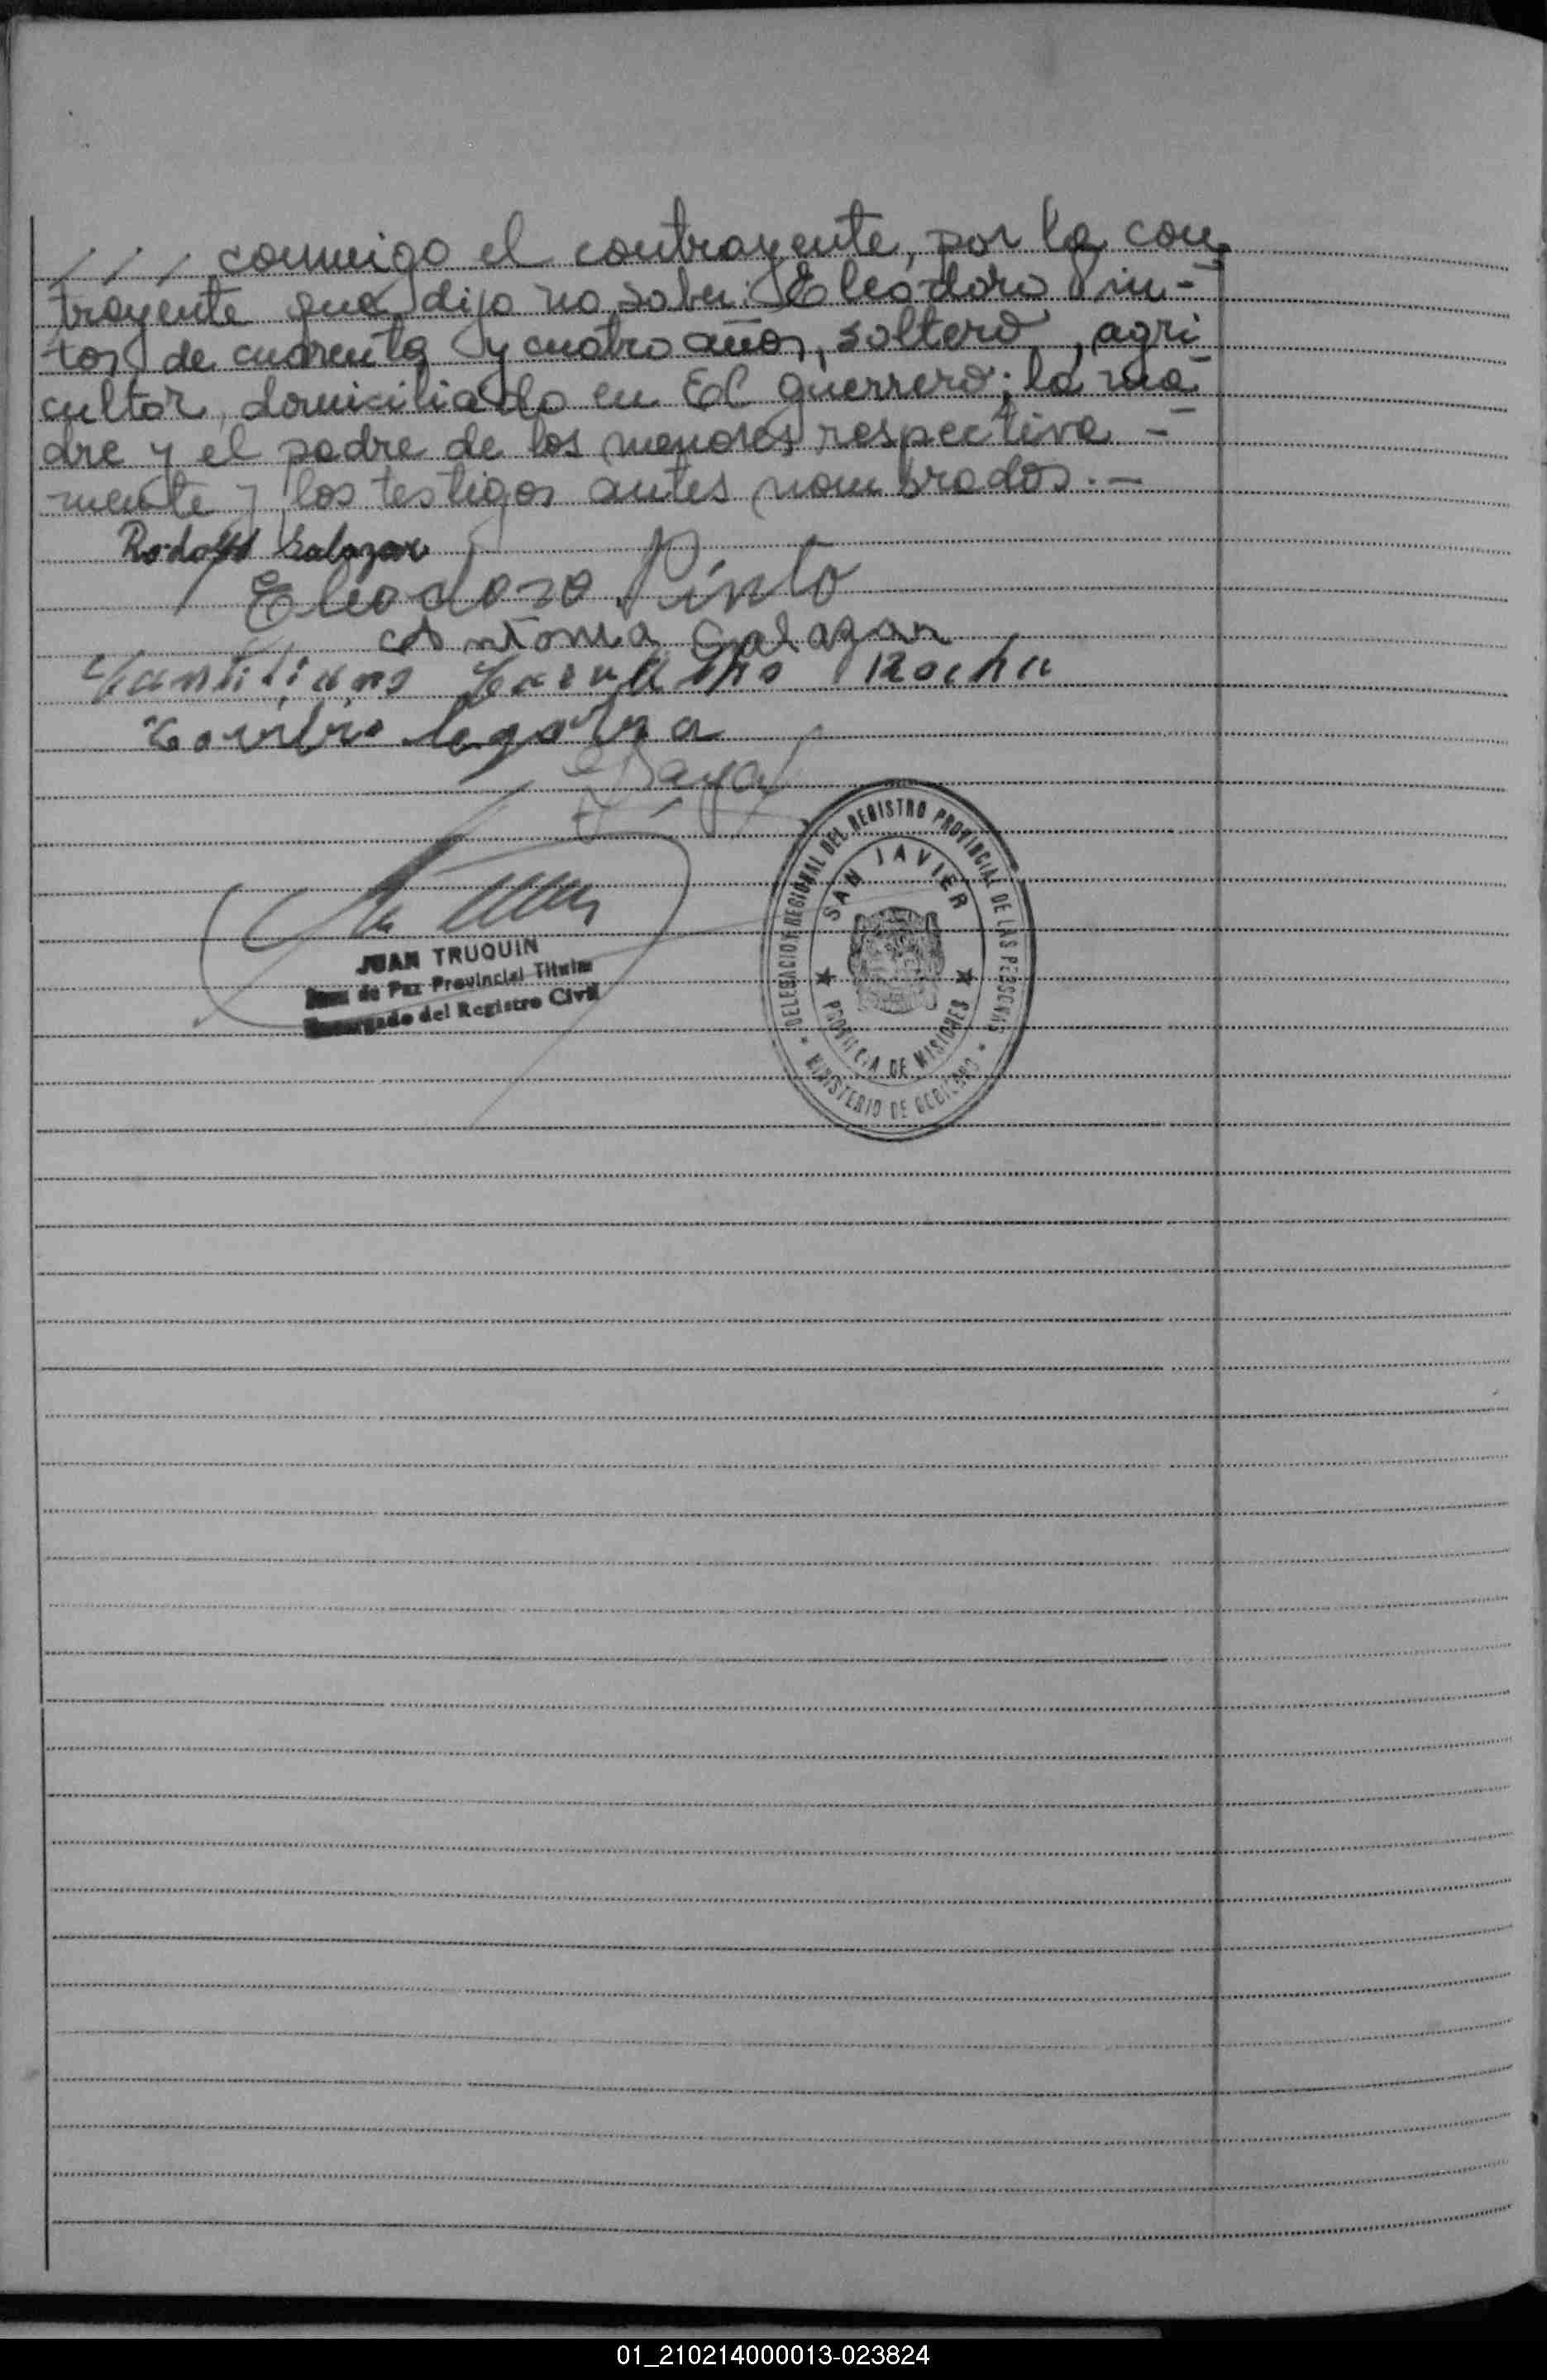 / / / conmigo el contrayente, por la con-
trayente que dijo no saber: Eleodoro Pin-
tos de cuarenta y cuatro años, soltero, agri-
cultor, domiciliado en El guerrero; la ma-
dre y el padre de los menores respectiva-
mente y los testigos antes nombrados.-
Rodolfo Salazar
Eleodoro Pinto
Antonia Galazan
Rocha
JUAN TRUQUIN
Juez de Paz Provincial Titular
Encargado del Registro Civil
DELEGACION REGIONAL DEL REGISTRO PROVINCIAL DE LAS PERSONAS
SAN JAVIER
PROVINCIA DE MISIONES
* MINISTERIO DE GOBIERNO *
01_210214000013-023824